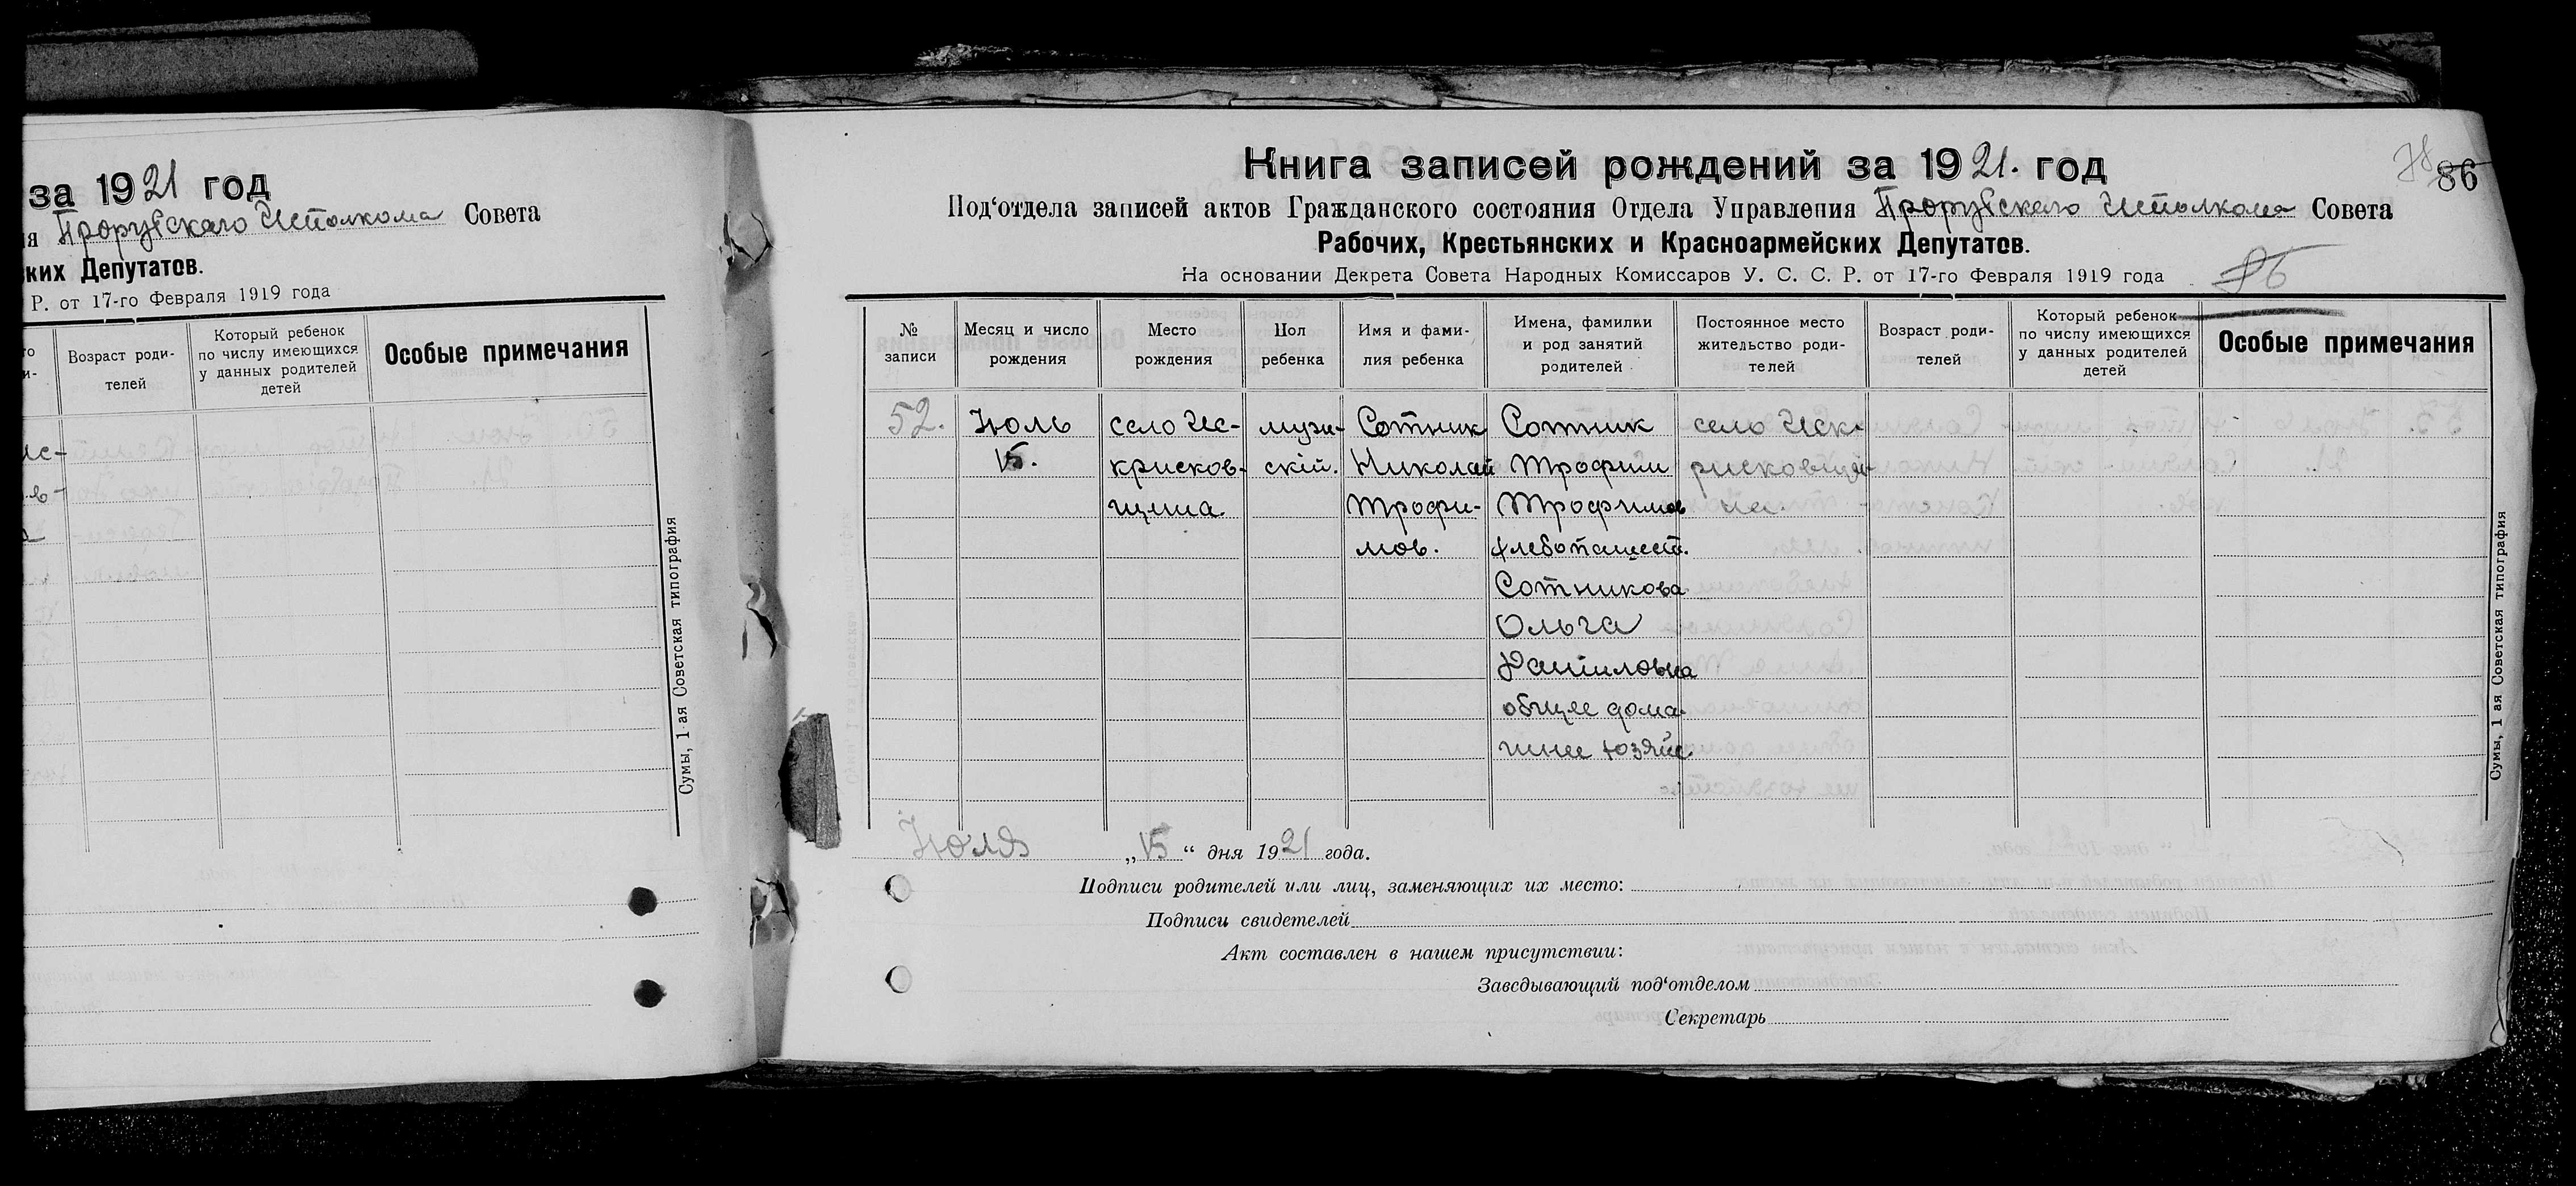 за 1921 год
Прорубского Исполкома Совета
ких Депутатов.
Р. от 17-го Февраля 1919 года
Возраст роди-
телей
Который ребенок
по числу имеющихся
у данных родителей
детей
Особые примечания
Сумы, 1-ая Советская типография
Книга записей рождений за 1921. год
86
Под‘отдела записей актов Гражданского состояния Отдела Управления Прорубского Исполкома Совета
Рабочих, Крестьянских и Красноармейских Депутатов.
На основании Декрета Совета Народных Комиссаров У. С. С. Р. от 17-го Февраля 1919 года
86
№
записи
Месяц и число
рождения
Место
рождения
Пол
ребенка
Имя и фами-
лия ребенка
Имена, фамилии
и род занятий
родителей
Постоянное место
жительство роди-
телей
Возраст роди-
телей
Который ребенок
по числу имеющихся
у данных родителей
детей
Особые примечания
52.
Июль
15.
село Ис-
крисков-
щина
мужи-
скій.
Сотник
Николай
Трофи-
мов.
Сотник
Трофим
Трофимов
хлебопашест.
Сотникова
Ольга
Даниловна
общее дома-
шнее хозяйс
село Иск-
рисковщи
на.
Июля „15“ дня 1921 года.
Подписи родителей или лиц, заменяющих их место:
Подписи свидетелей
Акт составлен в нашем присутствии:
Заведывающий под‘отделом
Секретарь
Сумы, 1 ая Советская типография